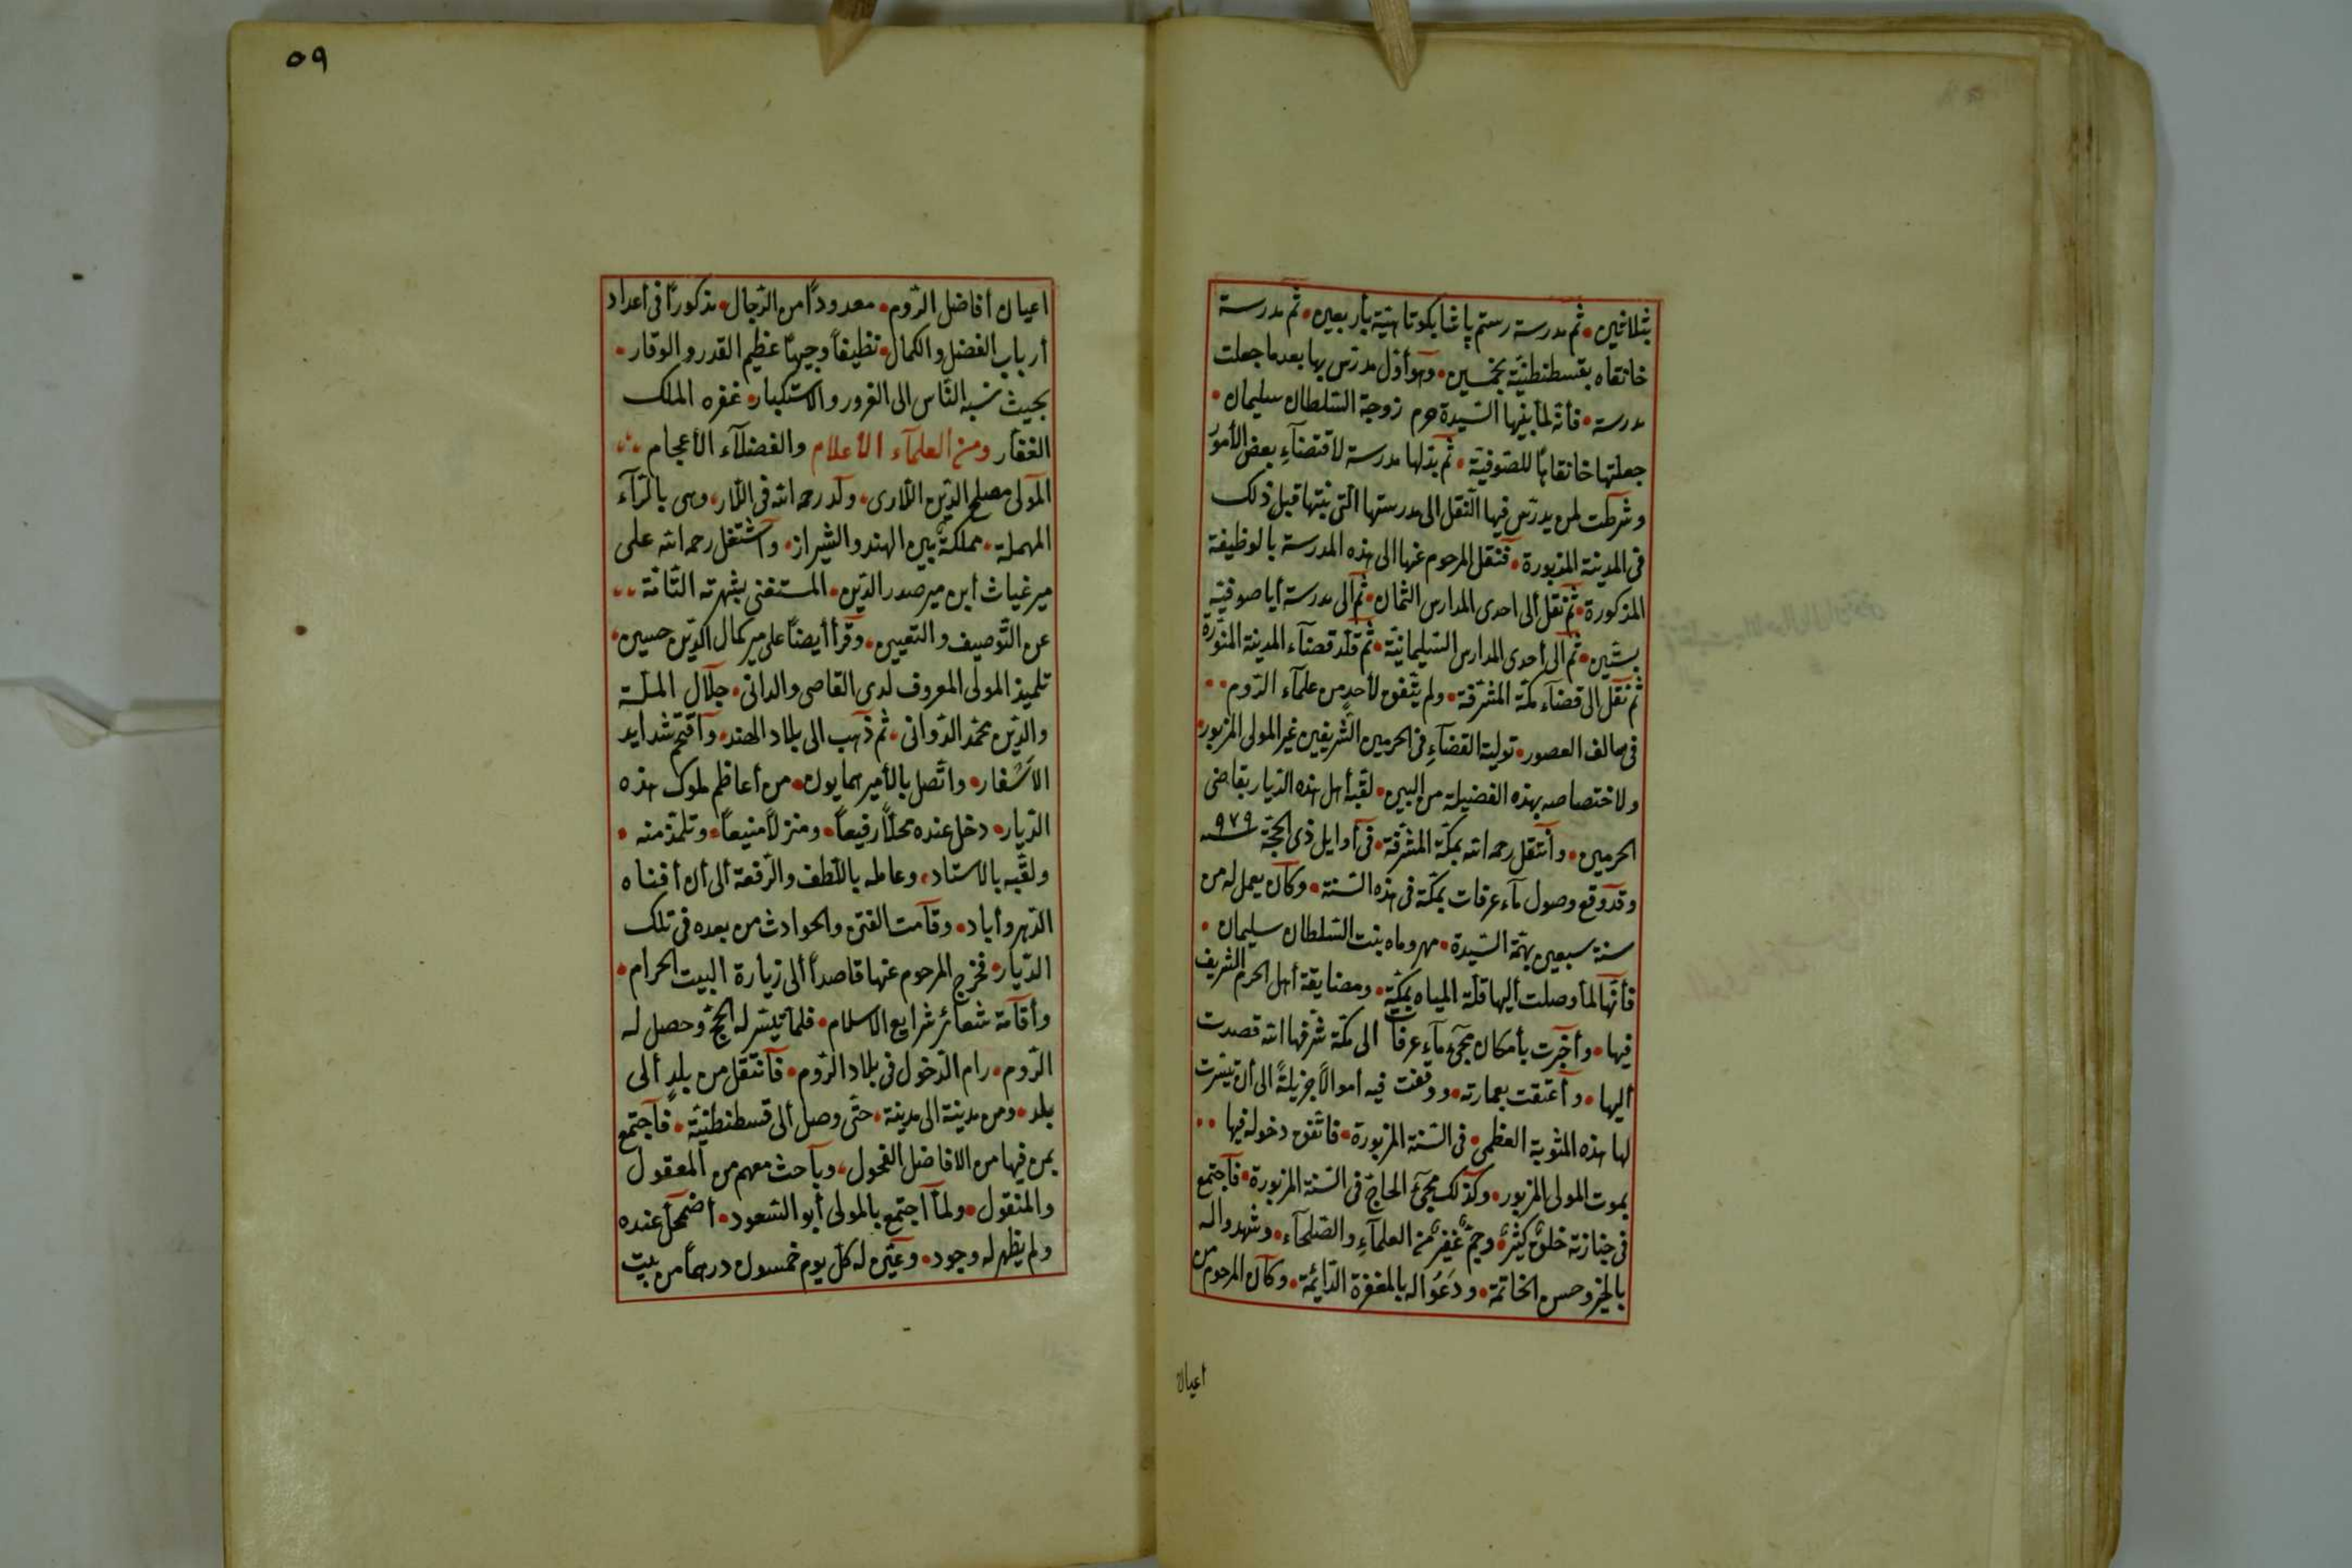 بثلاثين • ثم مدرسة رستم پاشا بكوتاهية بأربعين • ثم مدرسة
خانقاه بقسطنطنيّة بخمسين • وهو أوّل مدرّس بها بعدما جعلت
مدرسة • فأنّه لمّا بنيها السّيدة حرم زوجة السّلطان سليمان •
جعلتها خانقاهًا للصّوفيّة • ثم بدّلها مدرسة لاقتضآءِ بعض الأمور
وشرطت لمن يدرّس فيها النّقل الى مدرستها الّتى بنتها قبل ذلك
فى المدينة المذبورة • فنقل المرحوم عنها الى هذه المدرسة بالوظيفة
المذكورة • ثم نقل ألى احدى المدارس الثمان • ثم ألى مدرسة أيا صوفية
بستّين • ثم ألى أحدى المدارس السّليمانيّة • ثم قلّد قضآء المدينة المنوّرة
ثم نقل الى قضآء مكّة المشرّفة • ولم يتّفق لأحدٍ من علمآء الرّوم ••
فى سالف العصور • تولية القضآءِ فى الحرمين الشّريفين غير المولى المزبور •
ولاختصاصه بهذه الفضيلة من البين • لقّبه أهل هذه الدّيار بقاضى
الحرمين • وأنتقل رحمه الله بمكّة المشرّفة • فى أوايل ذى الحجّة سنه ٩٧٩
وقد وقع وصول مآء عرفات بمكّة فى هذه السّنة • وكان يعمل له من
سنة سبعين بهمّة السّيدة • مهروماه بنت السّلطان سليمان •
فأنّها لمّا وصلت أليها قلّة المياه بمكّة • ومضايقة أهل الحرم الشريف
فيها • وأخبرت بأمكان مجئ مآءِ عرفات الى مكّة شرّفها الله قصدت
أليها • وأعتقت بعمارته • ووقفت فيه أموالًا جزيلةً الى أن تيسّرت
لها هذه المثوبة العظمى • فى السّنة المزبورة • فاتّفق دخوله فيها ••
بموت المولى المزبور • وكذلك مجئ الحاجّ فى السّنة المزبورة • فأجتمع
فى جنازته خلقٌ كثيرٌ • وجمٌّ غفيرٌ من العلمآءِ والصّلحآء • وشهدوا له
بالخير وحسن الخاتمة • ودَعَوْا له بالمغفرة الدّائمة • وكان المرحوم من
اعيان
٥٩
اعيان أفاضل الرّوم • معدودًا من الرّجال • مذكورًا فى أعداد
أرباب الفضل والكمال • نظيفًا وجيهًا عظيم القدر والوقار •
بحيث نسبه النّاس الى الغرور والاستكبار • غفره الملك
الغفار ومن العلمآء الاعلام والفضلآء الأعجام
المولى مصلح الدّين اللّارى • ولد رحمه الله فى اللّار • وهى بالرّآء
المهملة • مملكةٌ بين الهند والشيراز • وأشتغل رحمه الله على
مير غياث أبن مير صدر الدّين • المستغنى بشهرته التّامّة ••
عن التّوصيف والتعيين • وقرأ أيضًا على مير كمال الدّين حسين •
تلميذ المولى المعروف لدى القاصى والدانى • جلال الملّة
والدّين محمّد الدّوانى • ثم ذهب الى بلاد الهند • وأقتحم شدايد
الأسْفار • واتّصل بالأمير همايون • من أعاظم ملوك هذه
الدّيار • دخل عنده محلًّا رفيعًا • ومنزلًا منيعًا • وتلمّذ منه •
ولقّبه بالاستاد • وعامله باللّطف والرّفعة ألى أن أفناه
الدّهر وأباد • وقامت الفتن والحوادث من بعده فى تلك
الدّيار • فخرج المرحوم عنها قاصدًا ألى زيارة البيت الحرام •
وأقامة شعائر شرايع الاسلام • فلمّا تيسّر له الحجّ وحصل له
الرّوم • رام الدّخول فى بلاد الرّوم • فأنتقل من بلدٍ ألى
بلد • ومن مدينة الى مدينة • حتّى وصل ألى قسطنطنيّة • فأجتمع
بمن فيها من الافاضل الفحول • وبآحث معهم من المعقول
والمنقول • ولمّا أجتمع بالمولى أبو السّعود • أضمحلّ عنده
ولم يظهر له وجود • وعيّن له كلّ يوم خمسون درهمًا من بيت